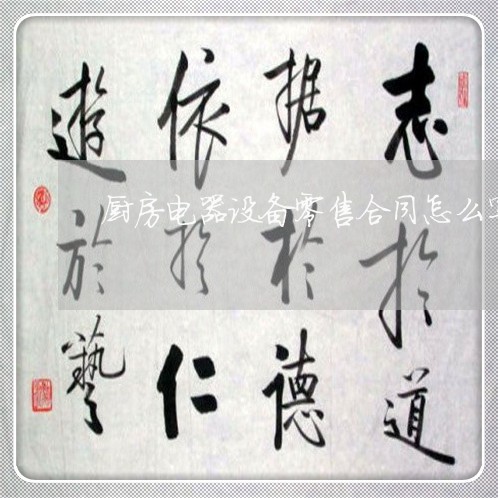 志於道
据於德
依於仁
遊於藝
厨房电器设备零售合同怎么